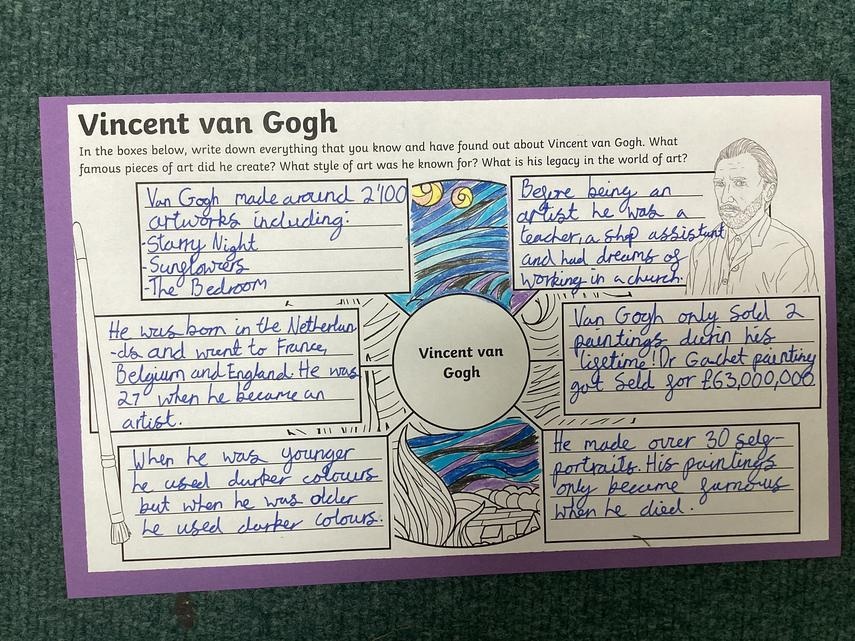 Vincent van Gogh
In the boxes below, write down everything that you know and have found out about Vincent van Gogh. What
famous pieces of art did he create? What style of art was he known for? What is his legacy in the world of art?
Van Gogh made around 2'100
artworks including:
-Starry Night
-Sunflowers
-The Bedroom
Before being an
artist he was a
teacher, a shop assistant
and had dreams of
working in a church.
He was born in the Netherlan
-ds and went to France,
Belgium and England. He was
27 when he became an
artist.
Vincent van
Gogh
Van Gogh only sold 2
paintings durin his
lifetime! Dr Gachet painting
got seld for £63,000,000.
When he was younger
he used darker colours
but when he was older
he used darker colours.
He made over 30 self-
portraits. His paintings
only became famous
when he died.